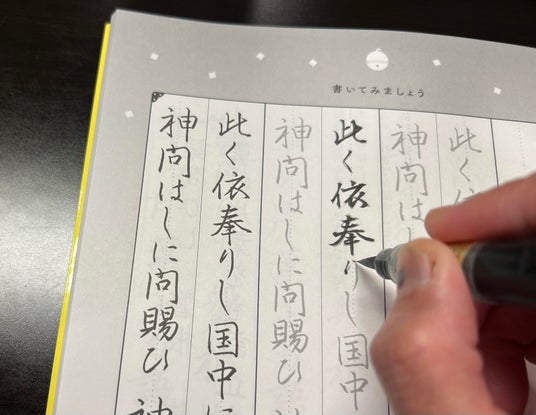 書いてみましょう
此く依
神問はし
此く依奉りし国中
神問はしに問賜ひ
此く依奉りし国中に
神問はしに問賜ひ神